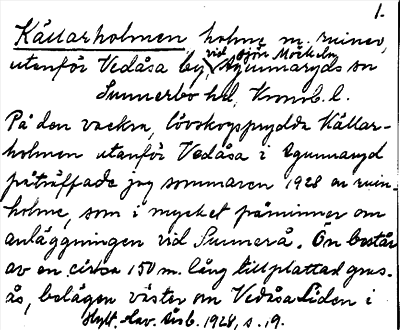 1.
Källarholmen, holme m. ruiner,
vid sjön Möckeln
utanför Vedåsa by, Agunnaryds sn
Sunnerbo hd, Kronob. l.
På den vackra, lövskogsprydda Källar-
holmen utanför Vedåsa i Agunnaryd
påträffade jag sommaren 1928 en ruin-
holme, som i mycket påminner om
anläggningen vid Sunnerå. Ön består
av en cirka 150 m. lång tillplattad grus-
ås, belägen väster om Vedåsa Liden i
Hylt. Hav. Årsb. 1928, s. 19.